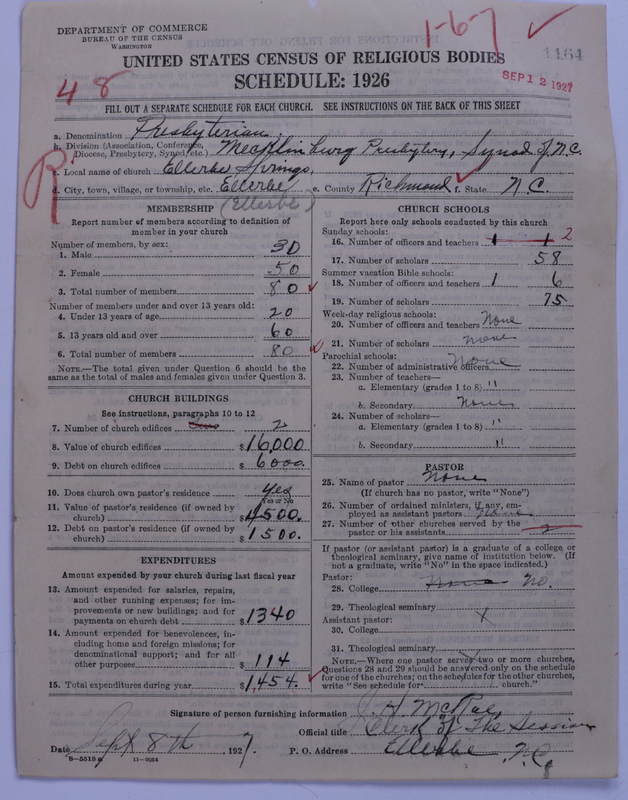 DEPARTMENT OF COMMERCE
BUREAU OF THE CENSUS
WASHINGTON
1-6-7
1164
UNITED STATES CENSUS OF RELIGIOUS BODIES
SCHEDULE: 1926
SEP 12 1927
48
FILL OUT A SEPARATE SCHEDULE FOR EACH CHURCH. SEE INSTRUCTIONS ON THE BACK OF THIS SHEET
a. Denomination Presbyterian
b. Division (Association, Conference, Diocese, Presbytery, Synod, etc.) Mecklinburg Presbytery, Synod of N.C.
c. Local name of church Ellerbe Springs,
d. City, town, village, or township, etc. Ellerbe e. County Richmond f. State N.C.
(Ellerbe)
MEMBERSHIP
Report number of members according to definition of
member in your church
Number of members, by sex:
1. Male 30
2. Female 50
3. Total number of members 80
Number of members under and over 13 years old:
4. Under 13 years of age 20
5. 13 years old and over 60
6. Total number of members 80
NOTE.—The total given under Question 6 should be the
same as the total of males and females given under Question 3.
CHURCH BUILDINGS
See instructions, paragraphs 10 to 12
7. Number of church edifices 2
8. Value of church edifices $16,000
9. Debt on church edifices $6000.
10. Does church own pastor's residence Yes
Yes or No
11. Value of pastor's residence (if owned by
church) $4500.
12. Debt on pastor's residence (if owned by
church) $1500.
EXPENDITURES
Amount expended by your church during last fiscal year
13. Amount expended for salaries, repairs,
and other running expenses; for im-
provements or new buildings; and for
payments on church debt $1340
14. Amount expended for benevolences, in-
cluding home and foreign missions; for
denominational support; and for all
other purposes $114
15. Total expenditures during year $1,454.
CHURCH SCHOOLS
Report here only schools conducted by this church
Sunday schools:
16. Number of officers and teachers 1 1 2
17. Number of scholars 58
Summer vacation Bible schools:
18. Number of officers and teachers 1 6
19. Number of scholars 75
Week-day religious schools:
20. Number of officers and teachers None
21. Number of scholars None
Parochial schools:
22. Number of administrative officers None
23. Number of teachers—
a. Elementary (grades 1 to 8) "
b. Secondary None
24. Number of scholars—
a. Elementary (grades 1 to 8) "
b. Secondary "
PASTOR
25. Name of pastor None
(If church has no pastor, write "None")
26. Number of ordained ministers, if any, em-
ployed as assistant pastors None
27. Number of other churches served by the
pastor or his assistants
If pastor (or assistant pastor) is a graduate of a college or
theological seminary, give name of institution below. (If
not a graduate, write "No" in the space indicated.)
Pastor:
28. College None No.
29. Theological seminary
Assistant pastor: x
30. College
31. Theological seminary
NOTE.—Where one pastor serves two or more churches,
Questions 28 and 29 should be answered only on the schedule
for one of the churches; on the schedules for the other churches,
write "See schedule for church."
Signature of person furnishing information J. A. McRae,
Official title Clerk of The Session
Date Sept 8th, 1927. P. O. Address Ellerbe N.C.
8-5518a 11-9264